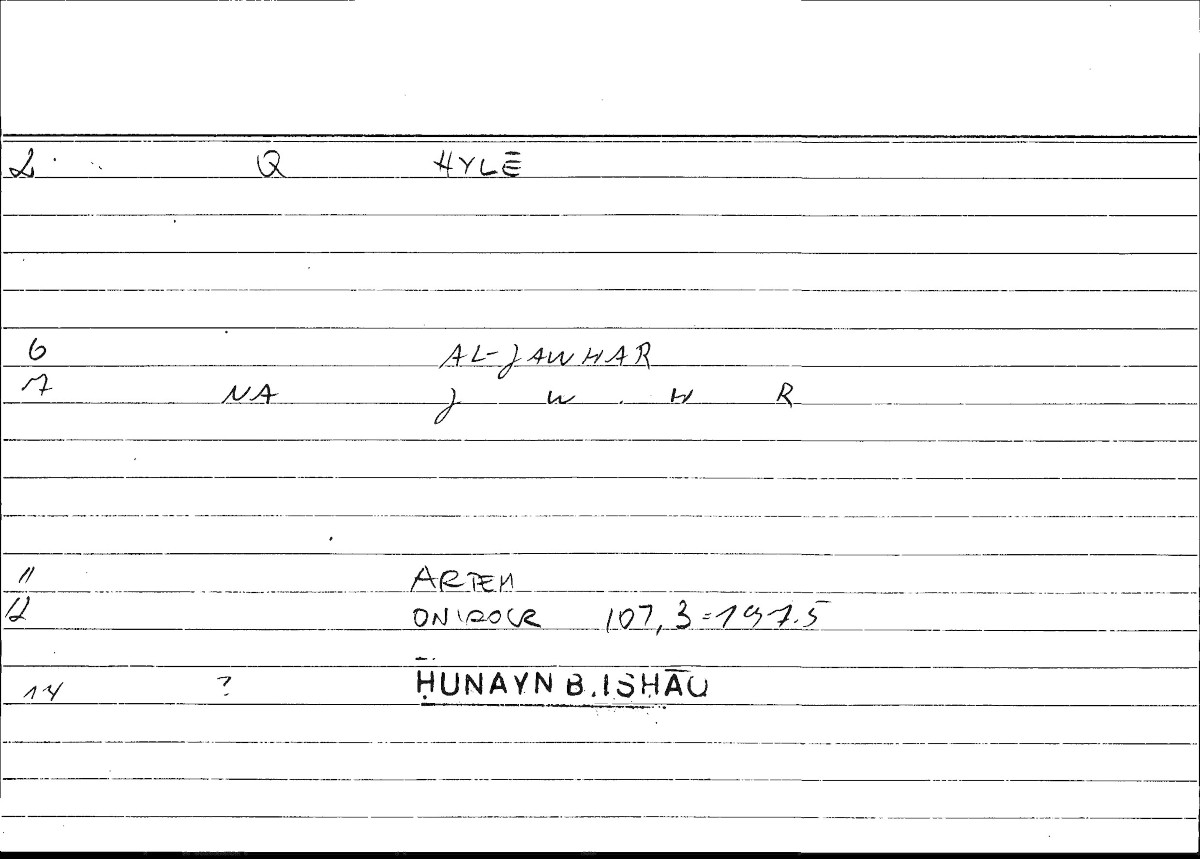 2 Q HYLĒ
6 AL-JAWHAR
7 NA J W H R
11 ARTEM
12 ONIROCR 107,3=197.5
14 ? ḤUNAYN B. ISHĀQ